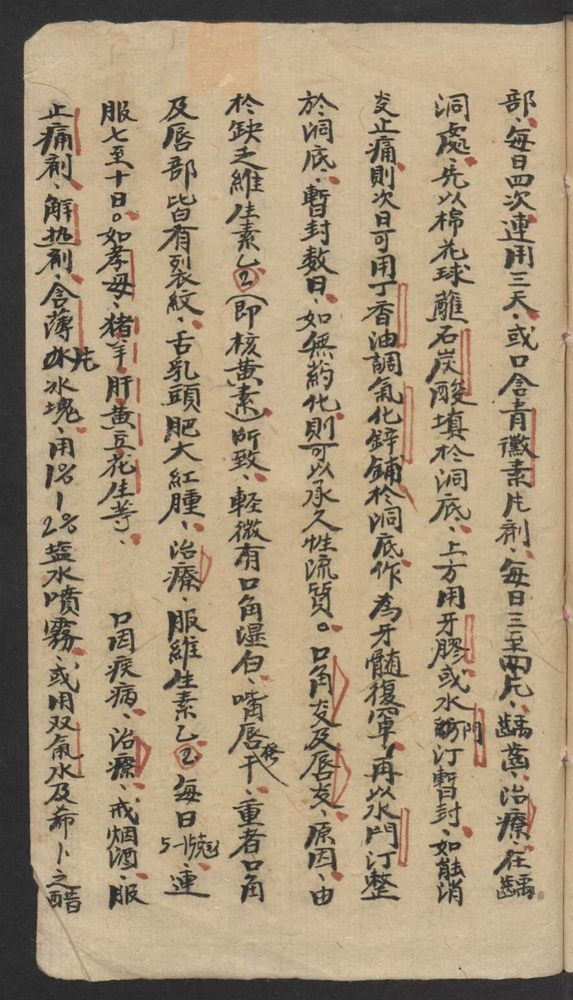 部、每日四次連用三天、或口含青黴素片劑、每日三至四片、齲齒、治療、在齲
洞處、先以棉花球蘸石炭酸填於洞底、上方用牙膠或水門汀暫封、如能消
炎止痛、則次日可用丁香油調氧化鋅鋪於洞底、作為牙髓復罩、再以水門汀整
於洞底、暫封數日、如無葯化則可以承久性流質。口角炎及唇炎、原因、由
於缺乏維生素乙2(即核黄素)所致、輕微有口角濕白、嘴唇干、重者口角
及唇部皆有裂紋、舌乳頭肥大紅腫、治療、服維生素乙2每日5-15毫、連
服七至十日。如孝母、猪羊肝黄豆花生等、 口因疾病、治療、戒烟酒、服
止痛劑、解热劑、含薄冰片冰塊、用1%-2%盐水噴霧、或用双氧水及希卜之醋